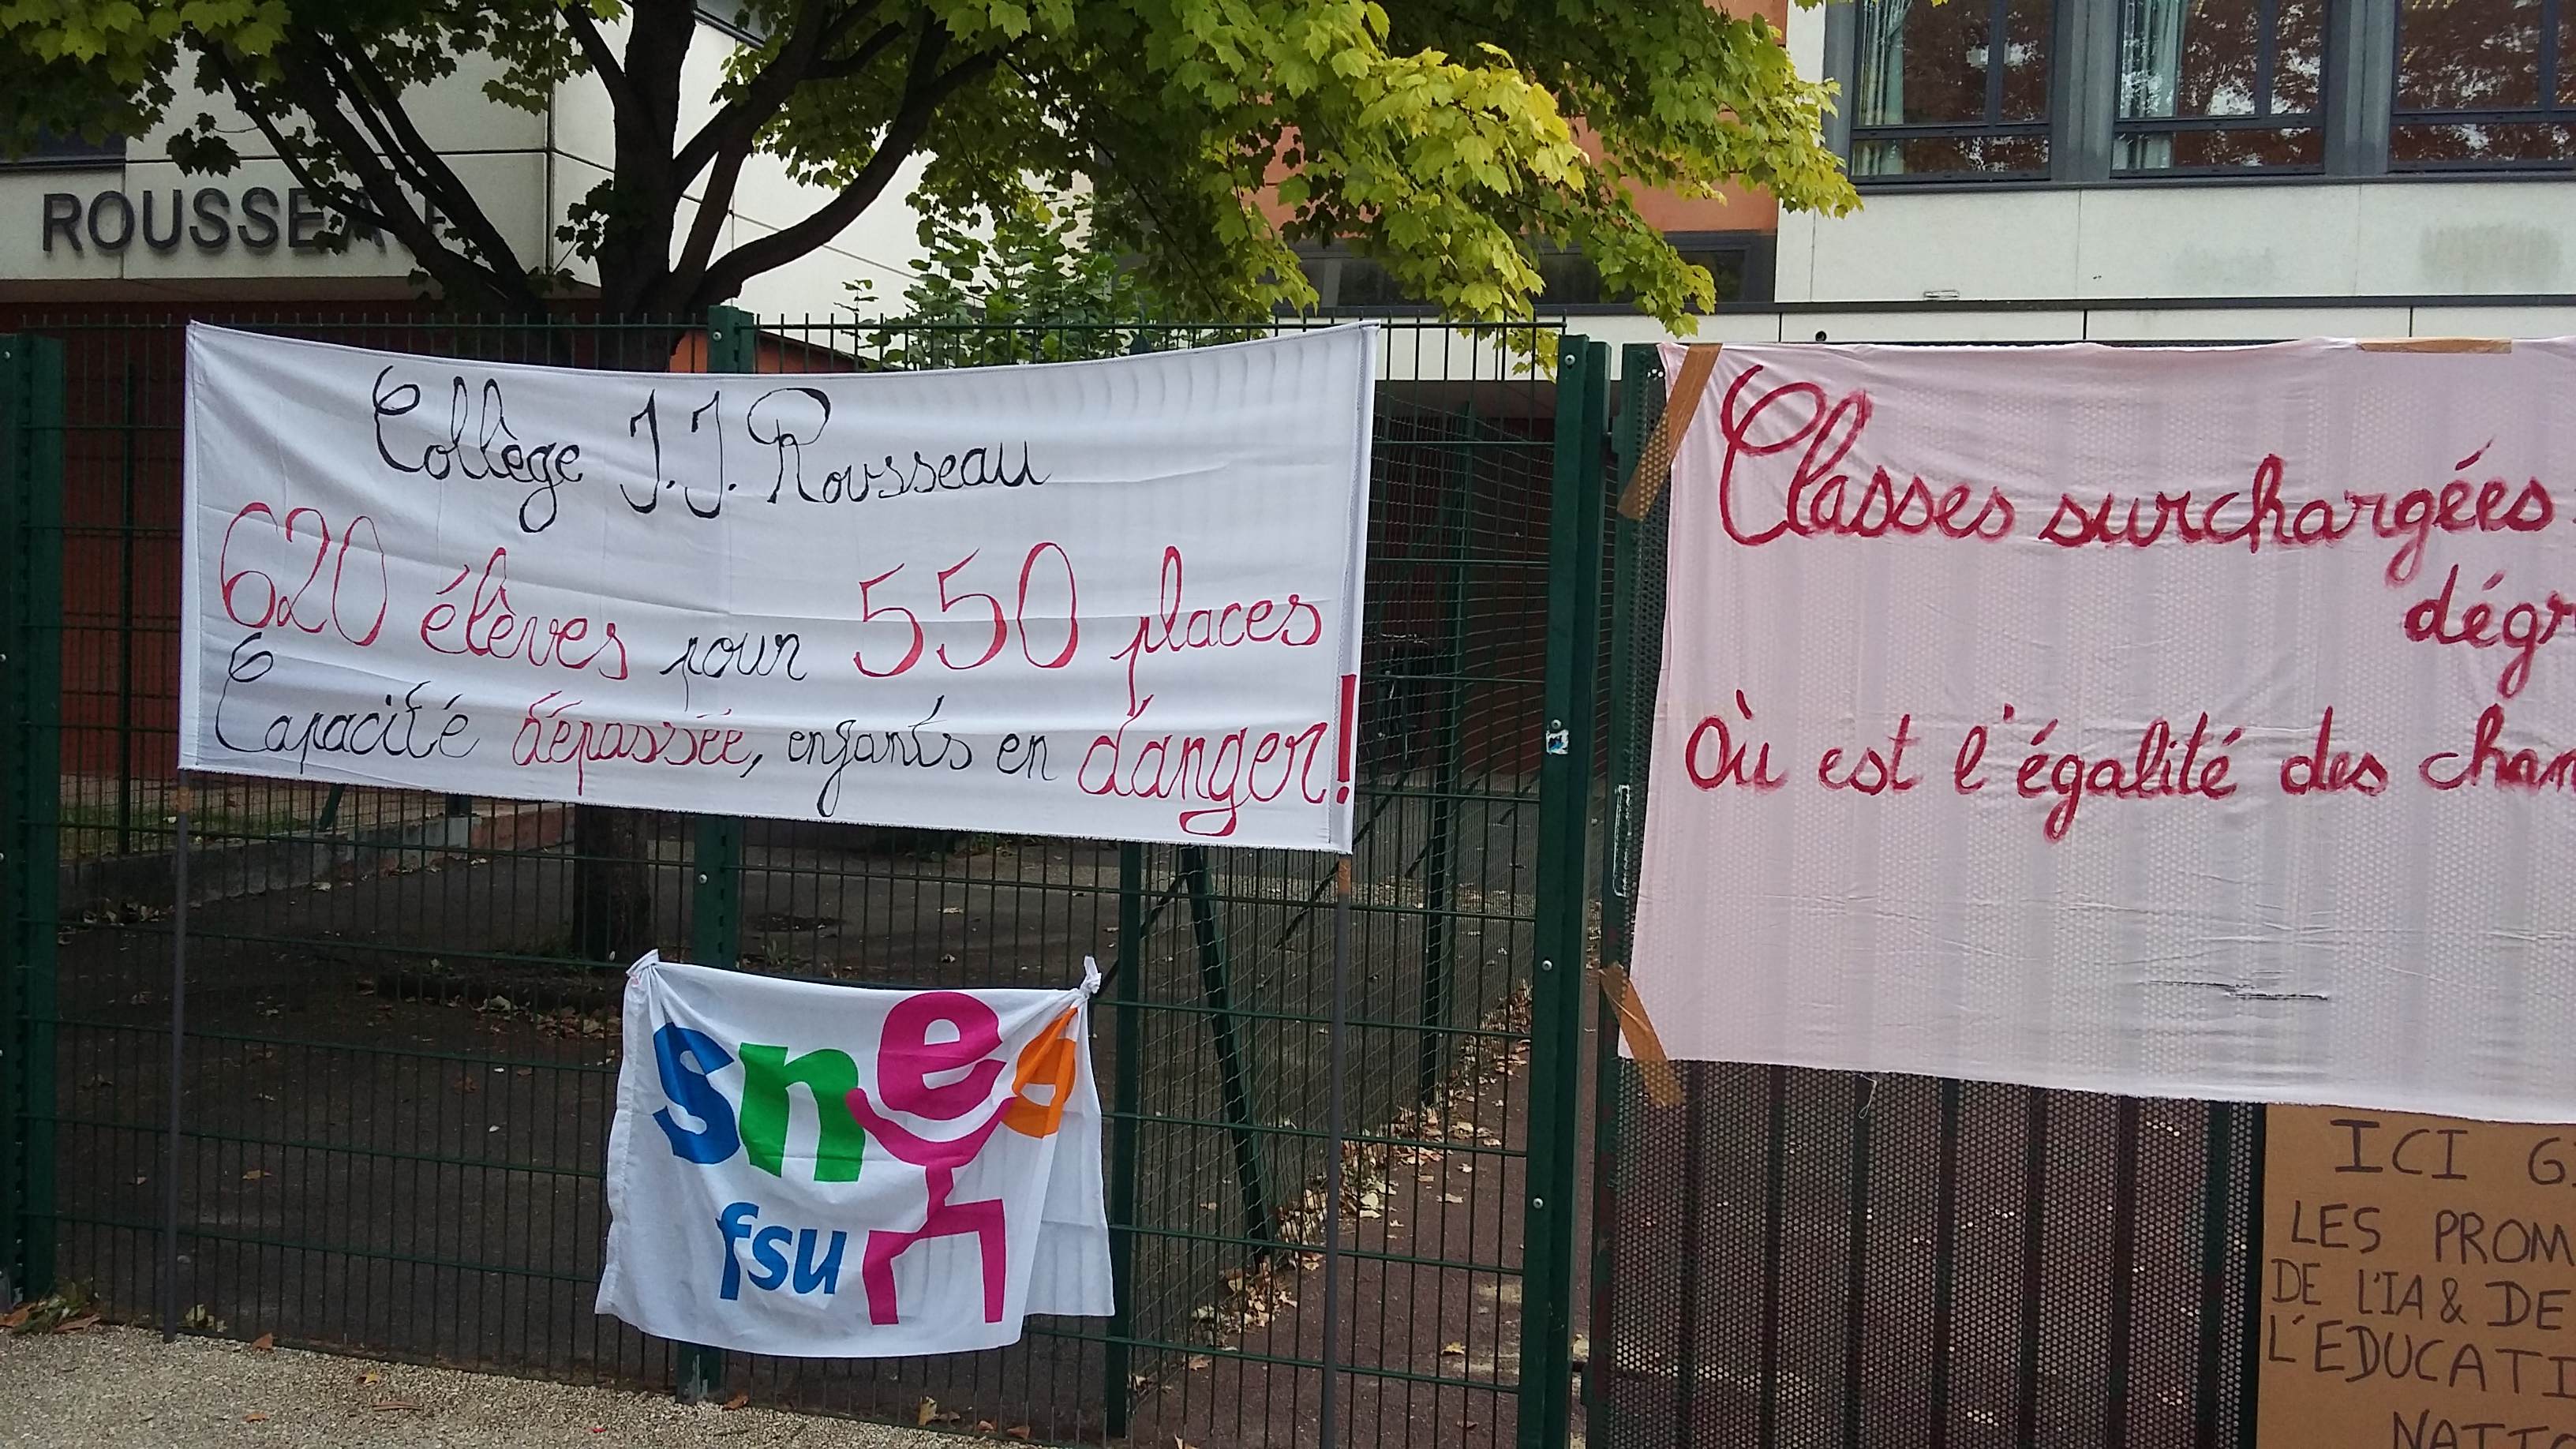 ROUSSEAU
Collège J.J. Rousseau
620 élèves pour 550 places
Capacité dépassée, enfants en danger!
snes
fsu
Classes surchargées
dégr
Où est l'égalité des chan
ICI G
LES PROM
DE L'IA & DE
L'EDUCATI
NATIO